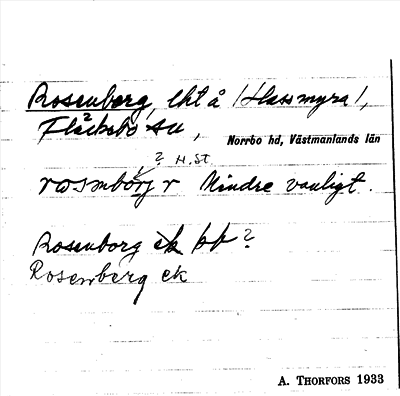 Rosenberg, lht å /Hassmyra/,
Fläckebo sn,
Norrbo hd, Västmanlands län
? H.St.
r Mindre vanligt.
Rosenborg ek ?
Rosenberg ek
A. THORFORS 1933